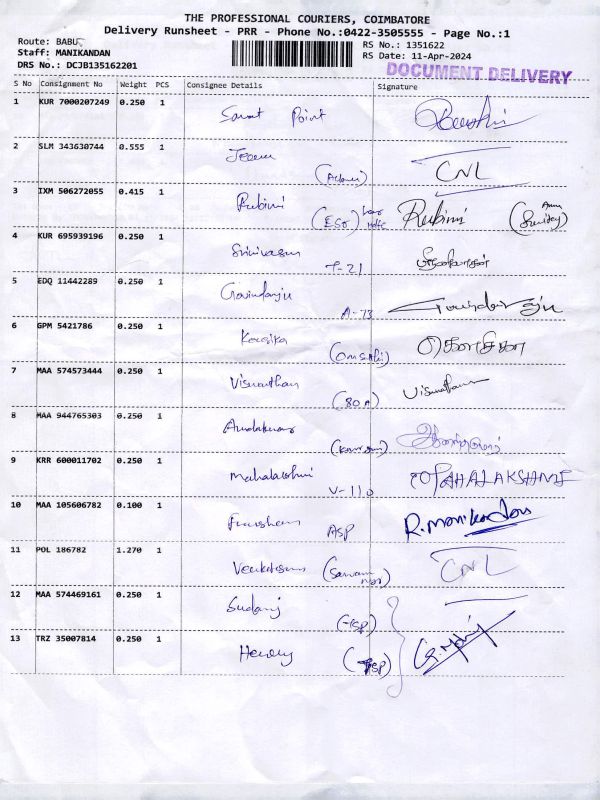 THE PROFESSIONAL COURIERS, COIMBATORE
Delivery Runsheet - PRR - Phone No.:0422-3505555 - Page No.:1
Route: BABU
RS No.: 1351622
Staff: MANIKANDAN
RS Date: 11-Apr-2024
DRS No.: DCJB135162201
DOCUMENT DELIVERY
S No Consignment No Weight PCS Consignee Details Signature
1 KUR 7000207249 0.250 1 Point
2 SLM 343630744 0.555 1 CNL
3 IXM 506272055 0.415 1 Rubini Rubini
4 KUR 695939196 0.250 1 Srinivasan T-21
5 EDQ 11442289 0.250 1 Govindaraju A-73 Govindaraju
6 GPM 5421786 0.250 1 Kousika கௌசிகா
7 MAA 574573444 0.250 1 Viswanathan (80A)
8 MAA 944765303 0.250 1
9 KRR 600011702 0.250 1 Mahalakshmi V-110 MAHALAKSHMI
10 MAA 105606782 0.100 1 ASP R.Manikandan
11 POL 186782 1.270 1 CNL
12 MAA 574469161 0.250 1 (TSP)
13 TRZ 35007814 0.250 1 (TSP)